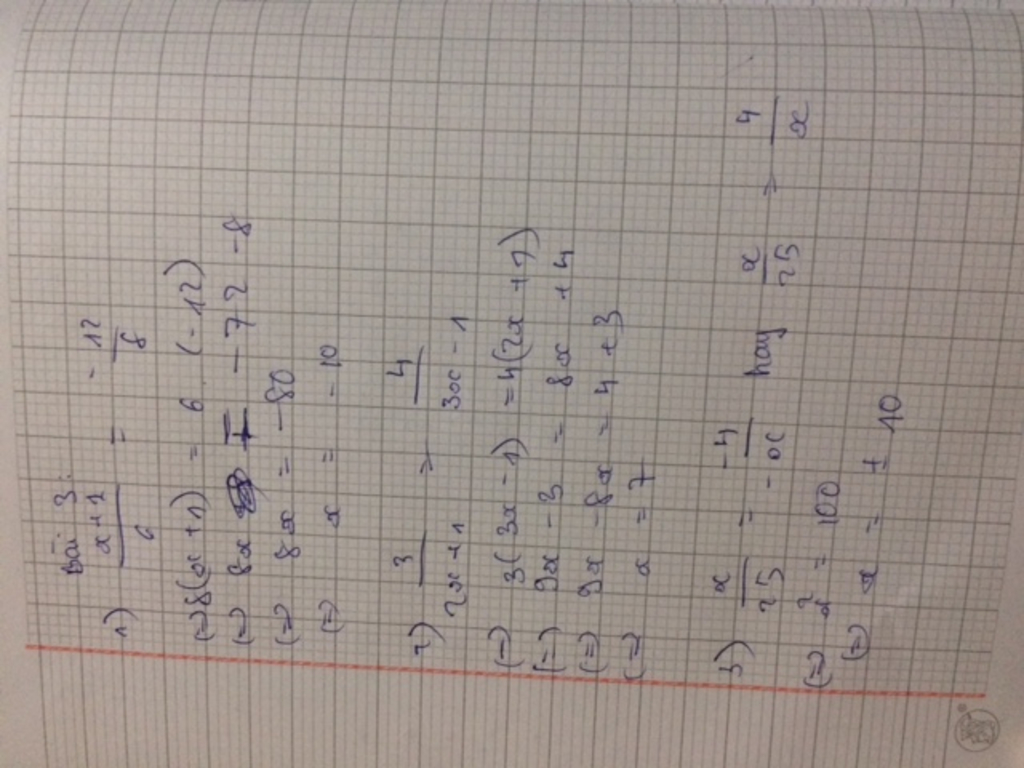 Bài 3:
1) x+1/6 = -12/8
(=) 8(x+1) = 6 . (-12)
(=) 8x = -72 -8
(=) 8x = -80
(=) x = -10
2) 3/2x+1 = 4/3x-1
(=) 3(3x-1) = 4(2x+1)
(=) 9x-3 = 8x+4
(=) 9x-8x = 4+3
(=) x = 7
3) x/25 = -4/-x hay x/25 = 4/x
(=) x² = 100
(=) x = ± 10